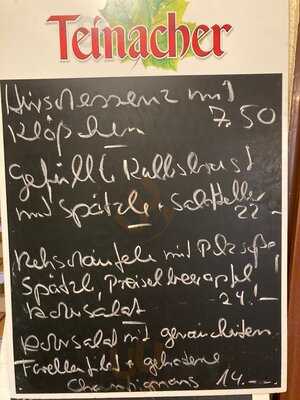 Teinacher
Hirschessenz mit
Klöpschen 7.50
Gefüllte Kalbsbrust
mit Spätzle + Salatteller
22.-
Rehschäufele mit Pilzsoße
Spätzle, Preiselbeerapfel
24.-
Ackersalat mit geräucherten
Forellenfilet + gebratene
Champignons 14.--